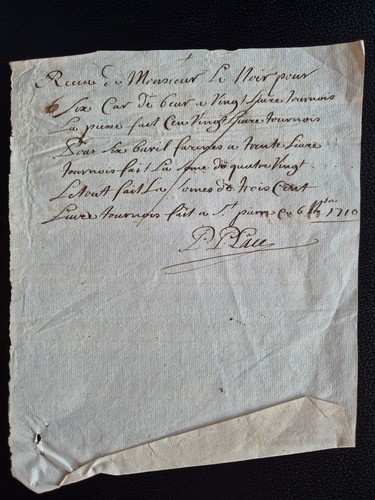 Receu de Monsieur Le Noir pour
six Car de beur a Vingt Livre tournois
La piese fait Cen Vingt Livre tournois
Pour six baril farines a trente Livre
tournois fait La some de quatre Vingt
Letout fait La somes de trois Cent
Livre tournois fait a St. pierre Ce 6 1710